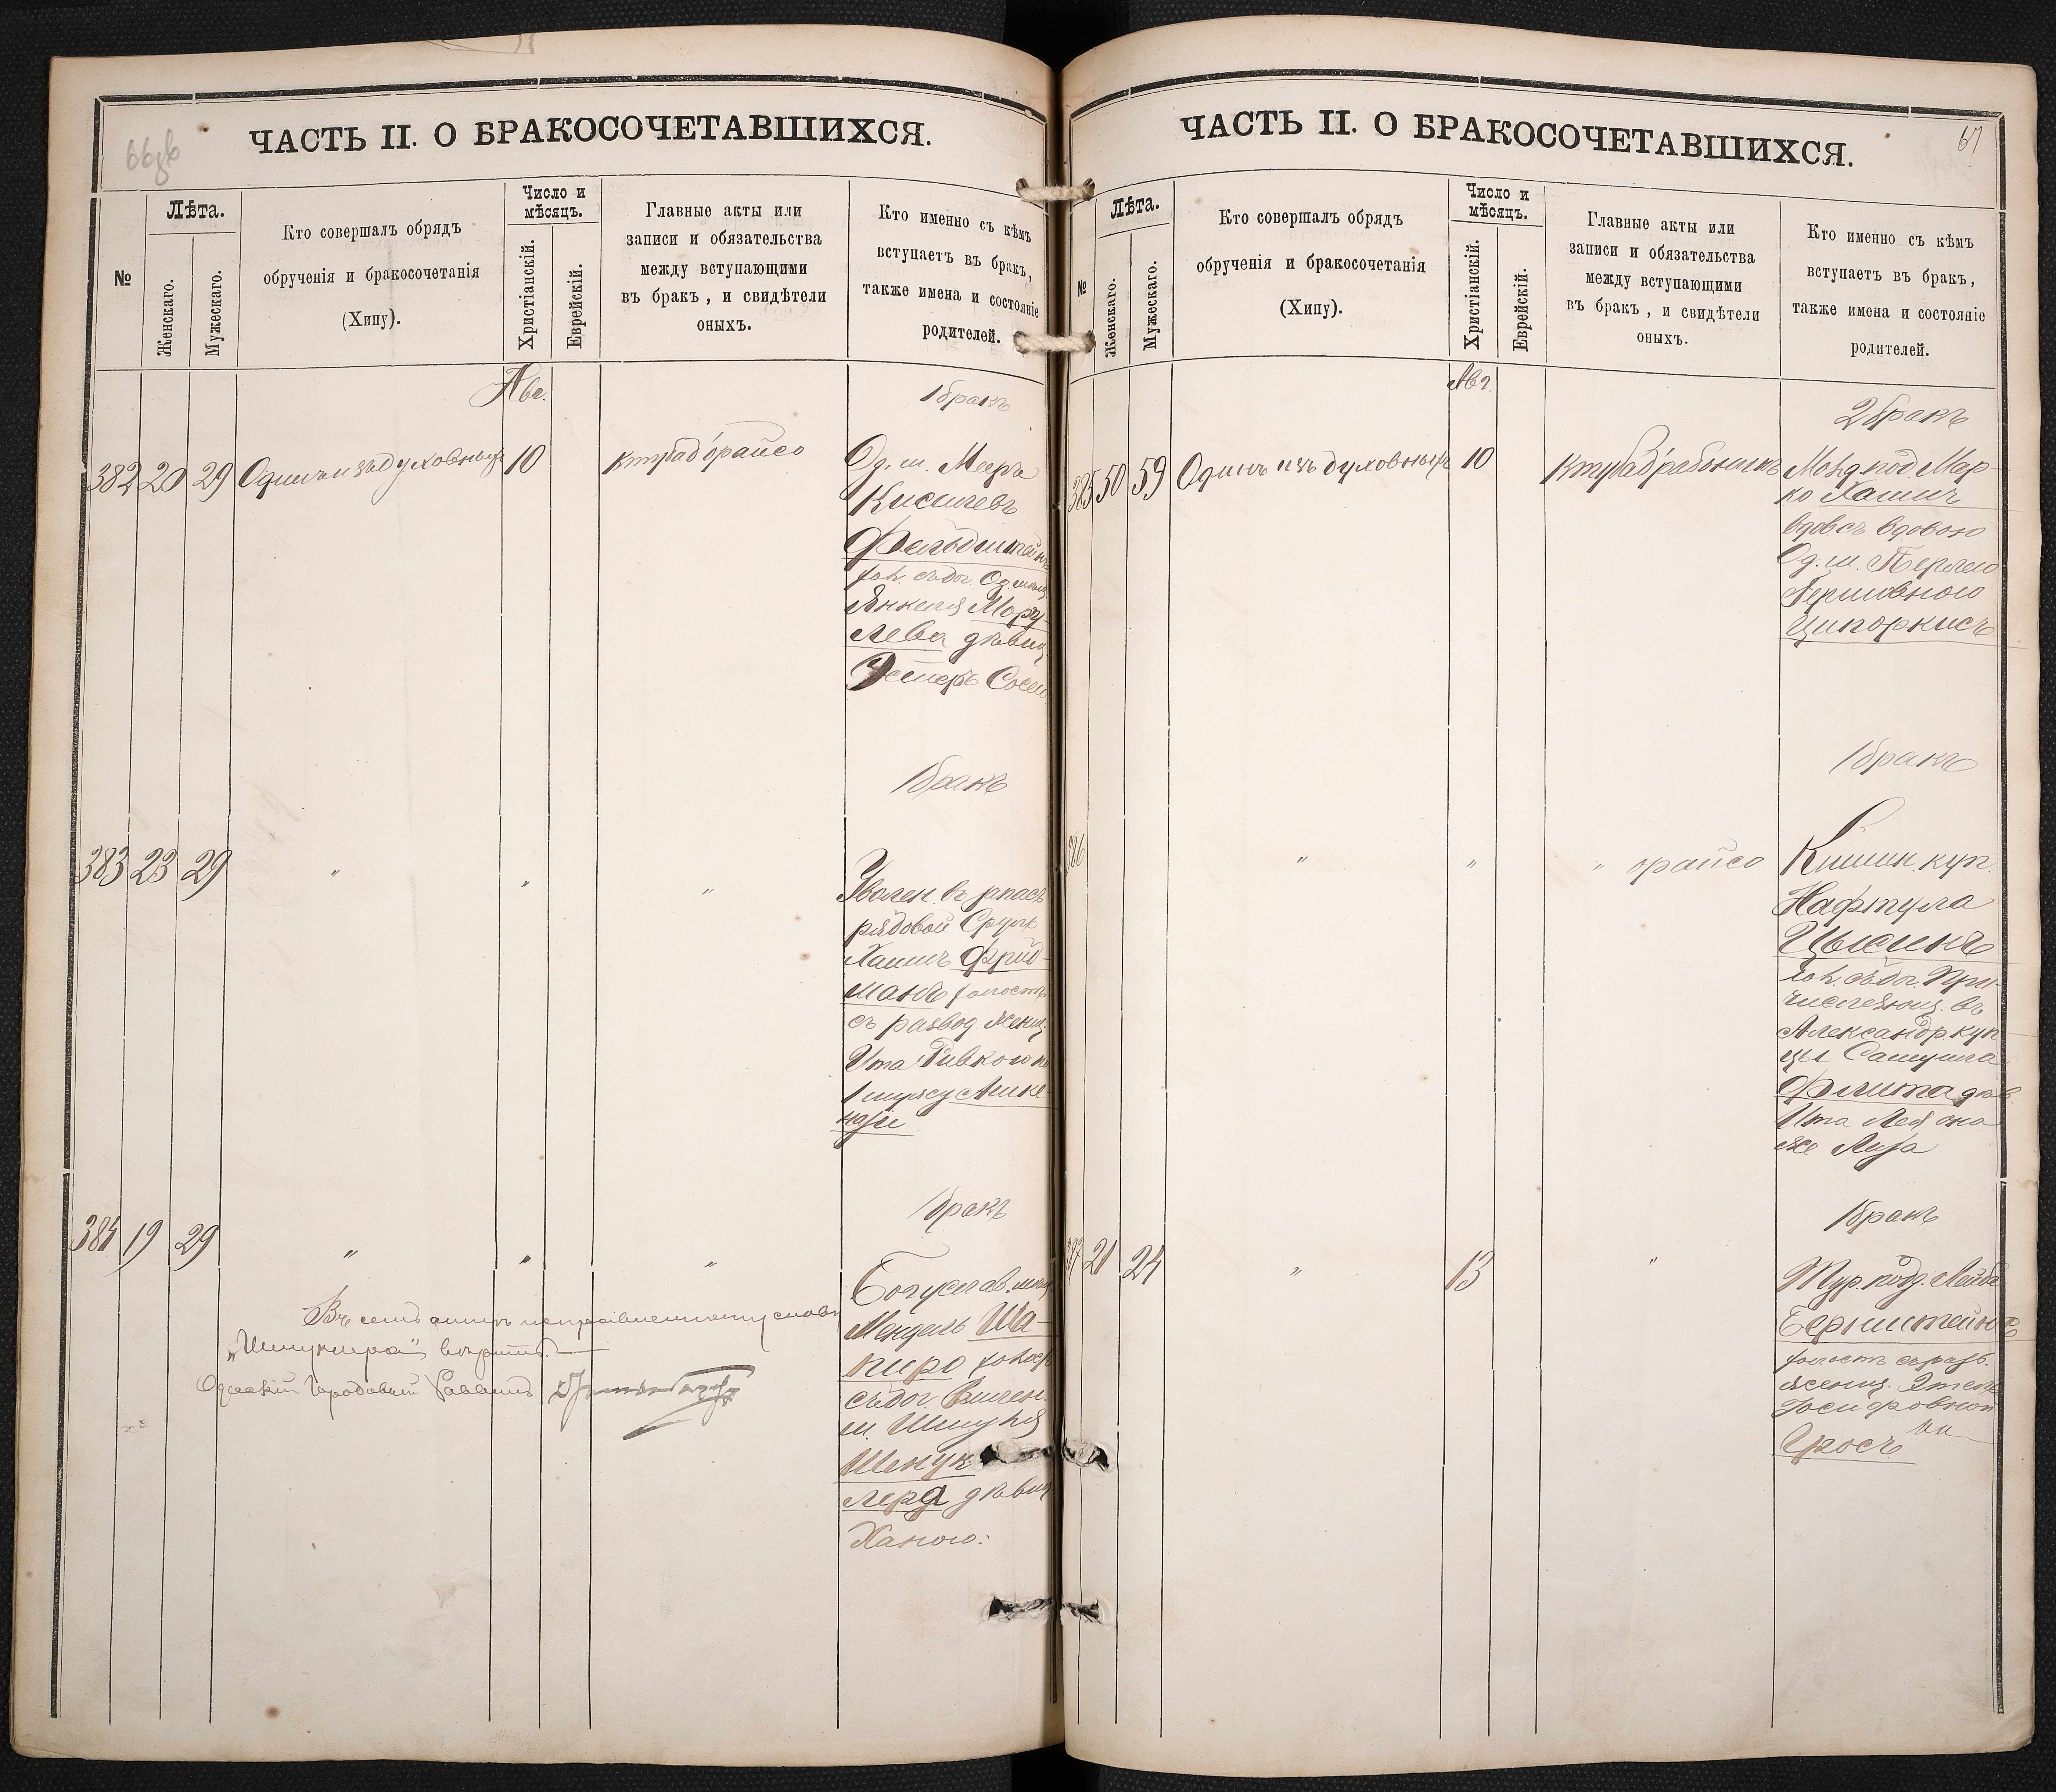 66об
ЧАСТЬ II. О БРАКОСОЧЕТАВШИХСЯ.
№
Лѣта.
Женскаго.
Мужескаго.
Кто совершалъ обрядъ
обрученія и бракосочетанія
(Хипу).
Число и
мѣсяцъ.
Христіанскій.
Еврейскій.
Главные акты или
записи и обязательства
между вступающими
въ бракъ, и свидѣтели
оныхъ.
Кто именно съ кѣмъ
вступаетъ въ бракъ,
также имена и состояніе
родителей.
Авг.
1 бракъ
382 20 29 Одинъ изъ духовныхъ 10 ктубад'орайсо Од. м. Мееръ
Фельдштейнъ
хол. съ доч. Од. мѣщ
Янкеля Мору-
лева дѣвиц.
Эстеръ Сосею
1 бракъ
383 23 29 " " " Уволен. въ запасъ
рядовой Сруль
Хаимъ Фрид-
манъ холостъ
съ развод. женщ.
Ита Ривкою по
1 мужу Ашке-
нази
1 бракъ
384 19 29 " " " Богуслав. мѣщ.
Мендель Ша-
пиро холост
съ доч. Вилен.
м. Шмуля
Шенук
лера дѣвиц
Ханою.
Въ семъ актѣ исправленному слову
вѣрить.
Одесскій Городовой Раввинъ
67
ЧАСТЬ II. О БРАКОСОЧЕТАВШИХСЯ.
№
Лѣта.
Женскаго.
Мужескаго.
Кто совершалъ обрядъ
обрученія и бракосочетанія
(Хипу).
Число и
мѣсяцъ.
Христіанскій.
Еврейскій.
Главные акты или
записи и обязательства
между вступающими
въ бракъ, и свидѣтели
оныхъ.
Кто именно съ кѣмъ
вступаетъ въ бракъ,
также имена и состояніе
родителей.
Авг.
2 бракъ
385 50 59 Одинъ изъ духовныхъ 10 ктубад'рабонимъ Мар-
ко Хаимъ
вдов. съ вдовою
Од. м. Перлею
Гершковною
Ципоркисъ
1 бракъ
386 " " " орайсо Кишин. куп.
Нафтула
Цысинъ
хол. съ доч. При-
числяющ. въ
Александр. куп
цы Самуила
Флита дѣв.
Ита Лея она
же Лиза
1 бракъ
387 21 24 " 13 " Тур. под. Лейба
Бернштейнъ
холост съ разв.
женщ. Этель
Іосифовной
Гросъ